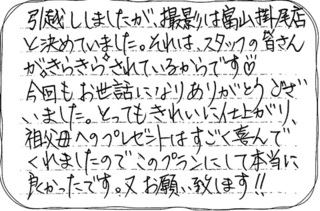 引越ししましたが、撮影は富山掛尾店
と決めていました。それは、スタッフの皆さん
がきらきらされているからです♡
今回もお世話になりありがとうござ
いました。とってもきれいに仕上がり、
祖父母へのプレゼントはすごく喜んで
くれましたのでこのプランにして本当に
良かったです。又お願い致します!!